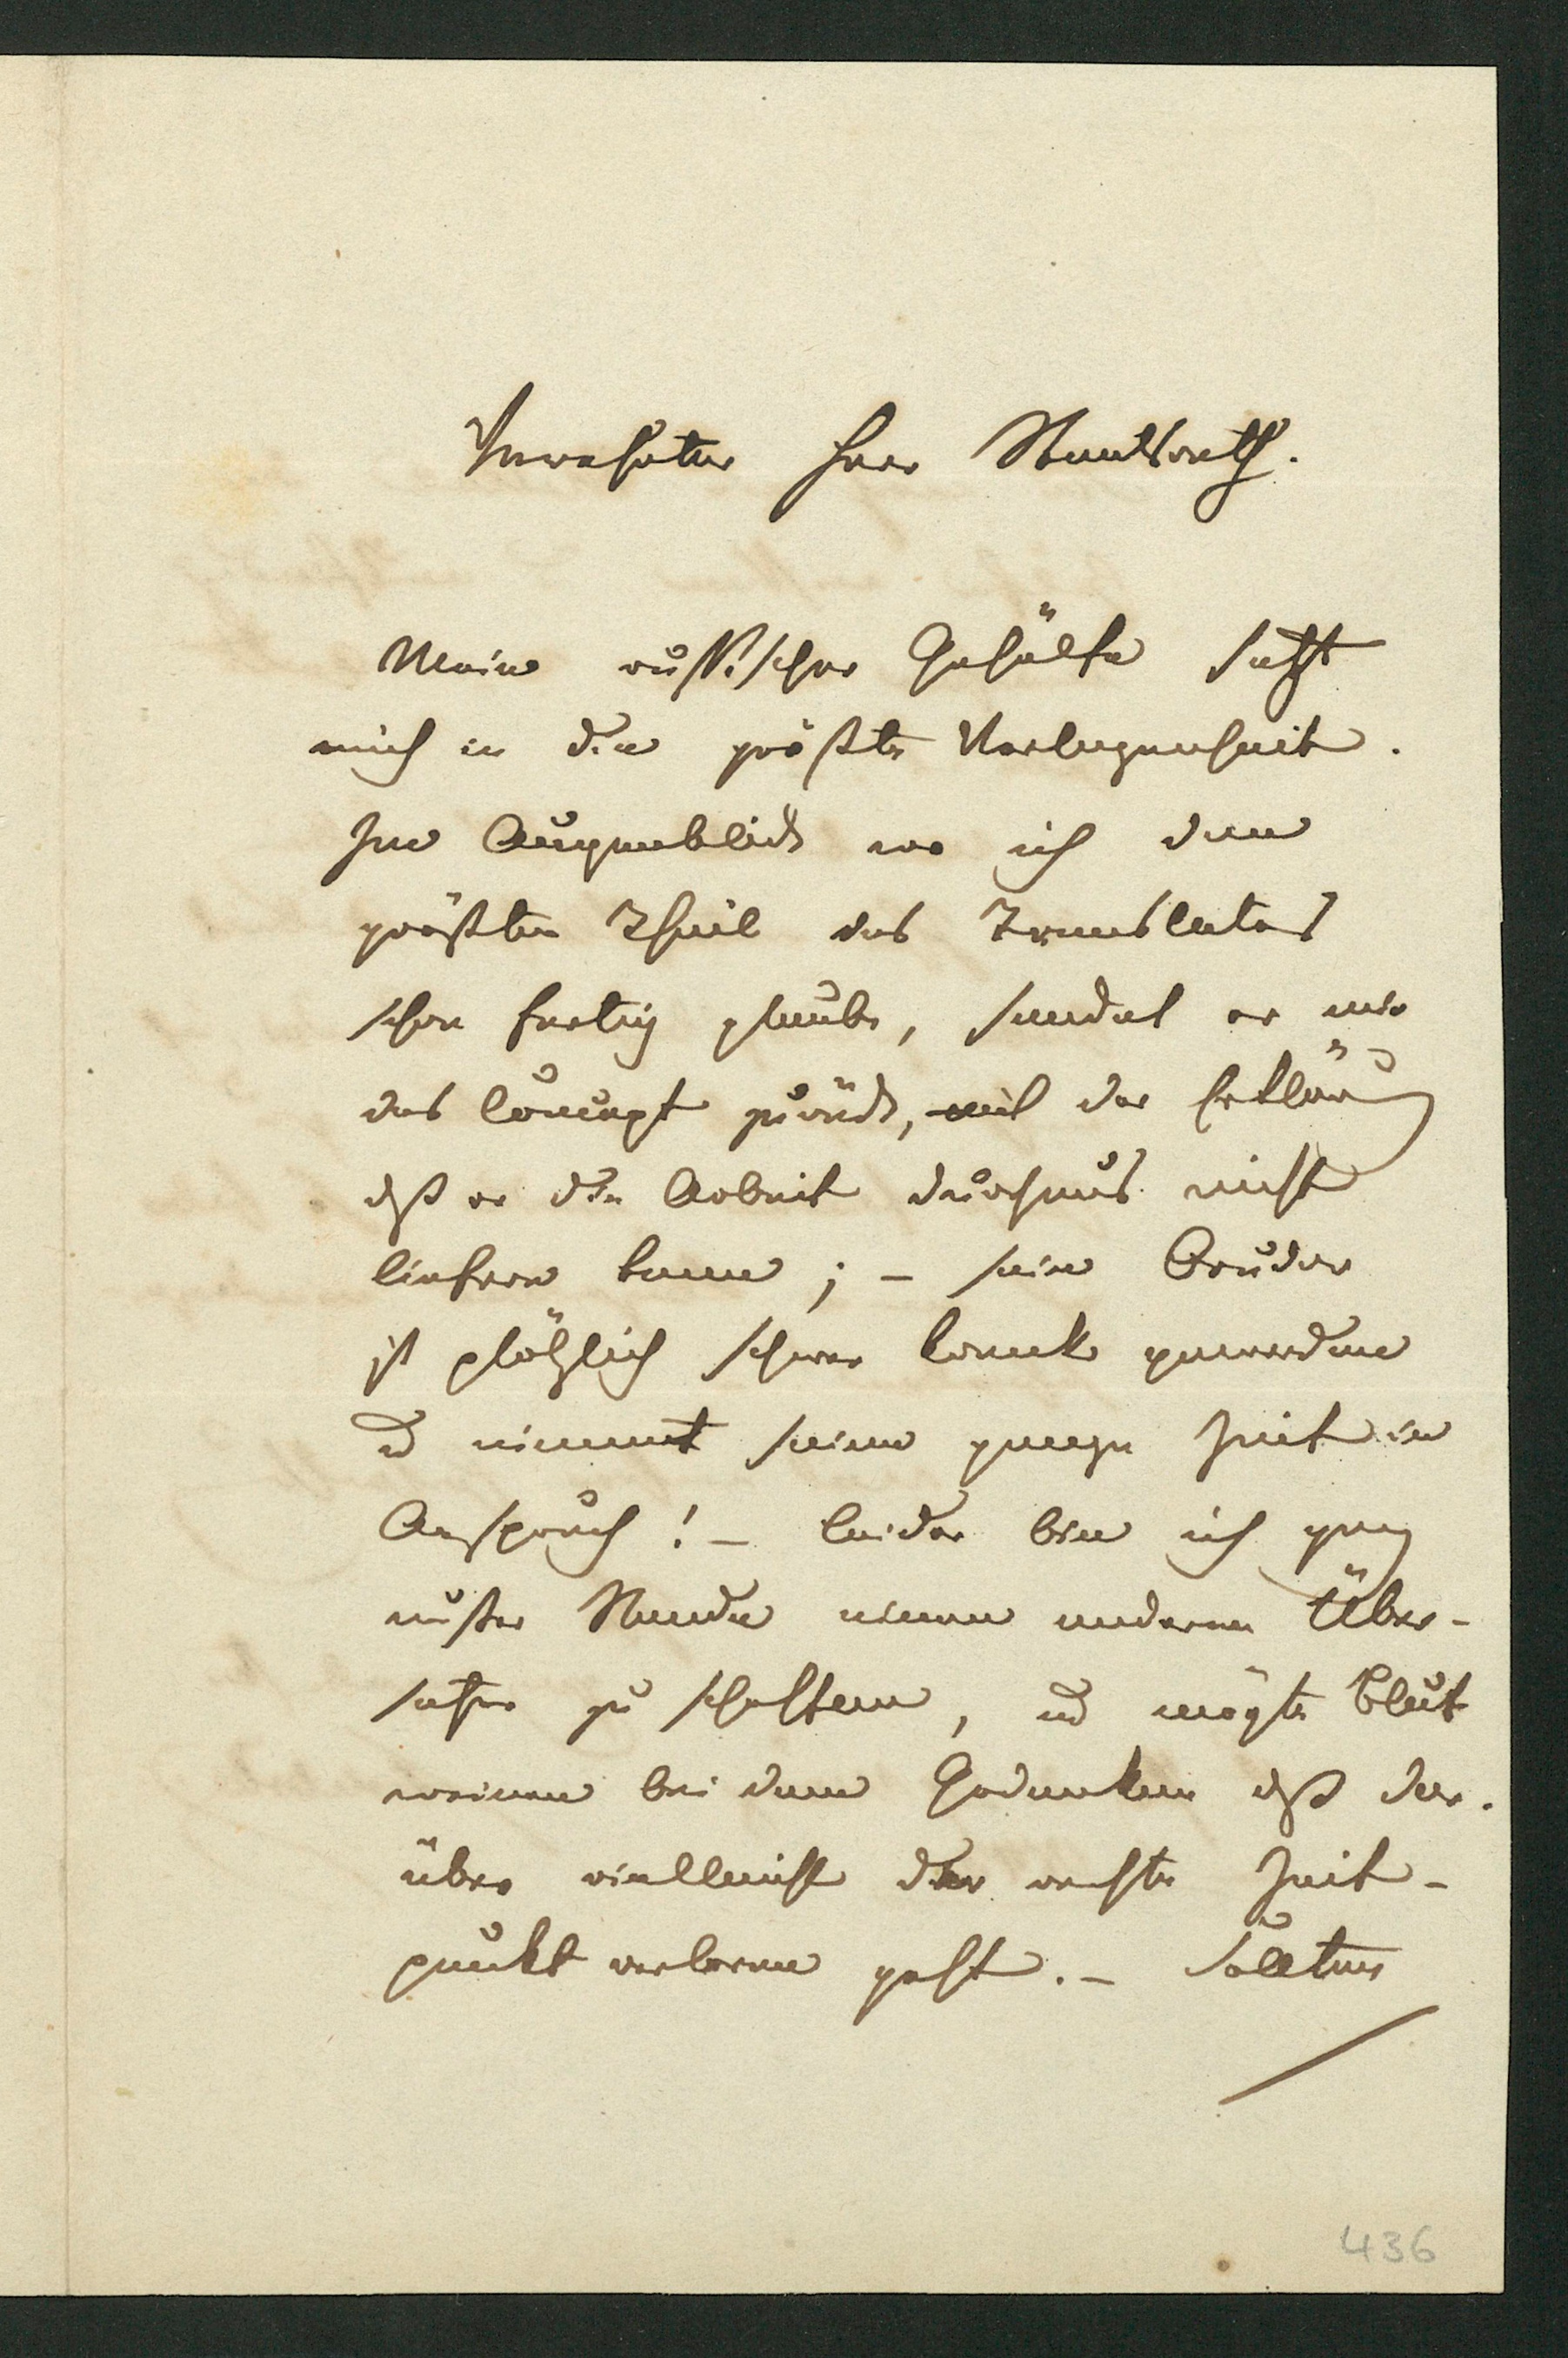 Verehrter Herr Staatsrath.
Mein russischer Gehülfe setzt
mich in die größte Verlegenheit.
Im Augenblick wo ich den
größten Theil des Translates
schon fertig glaube, sendet er mir
das Concept zurück, mit der Erklärung
dß er die Arbeit durchaus nicht
liefern kann; – sein Bruder
ist plötzlich schwer krank geworden
ud nimmt seine ganze Zeit in
Anspruch! – leider bin ich ganz
außer Stande einen anderen Über-
setzer zu schaffen, ud mögte Blut
weinen bei dem Gedanken dß dar-
über vielleicht der rechte Zeit-
punkt verloren geht. – Sollten
436